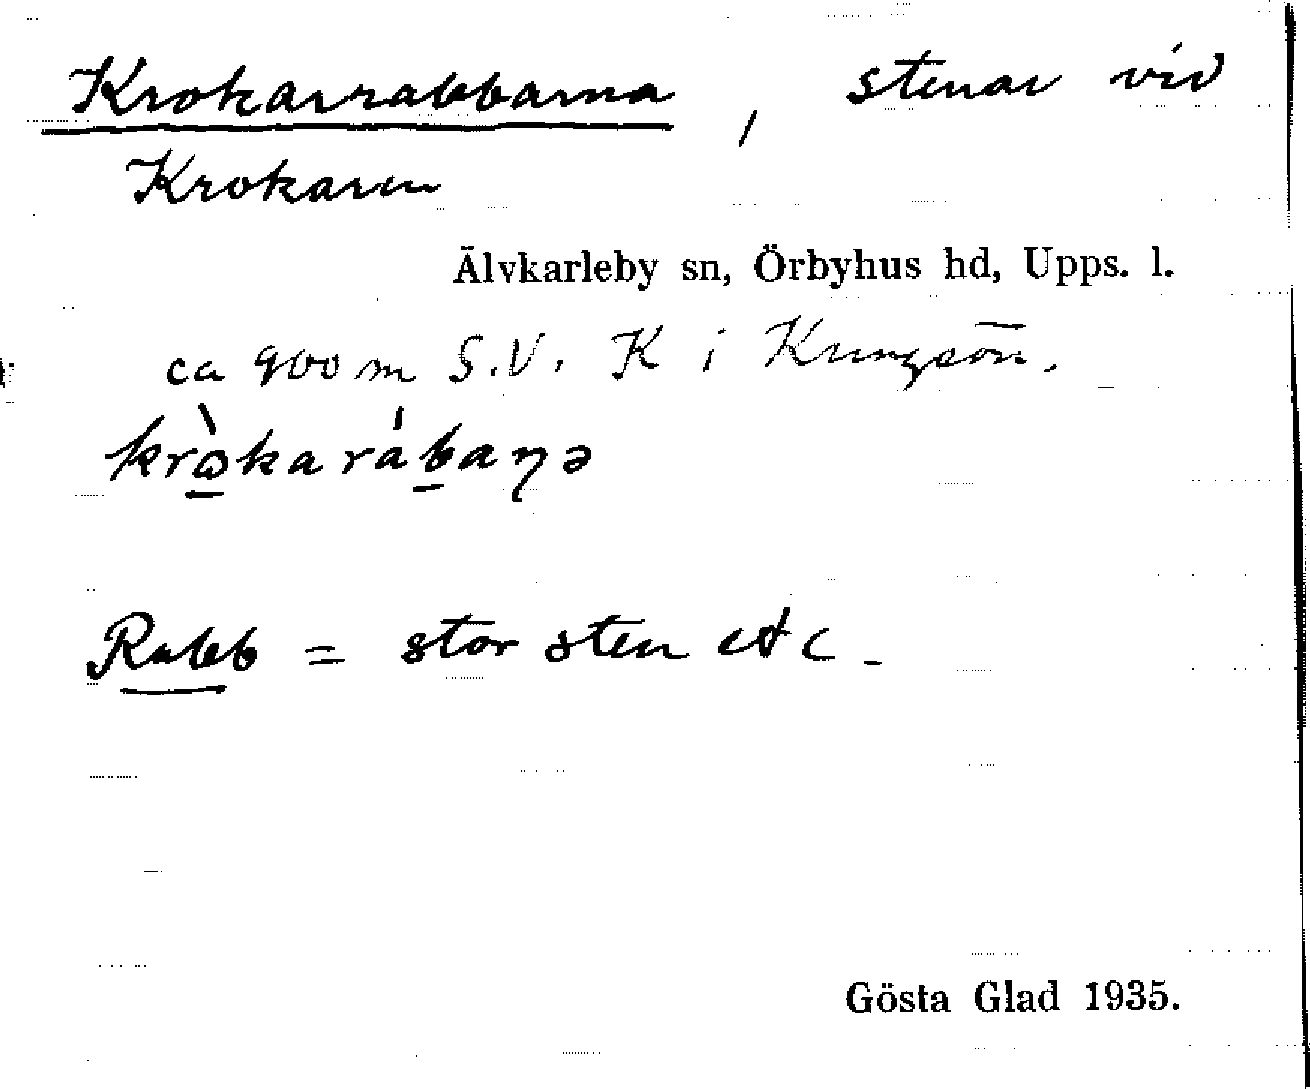 Krokarrabbarna, stenar vid
Krokaren
Älvkarleby sn, Örbyhus hd, Upps. l.
ca 900 m S.V. K i Kungsön.
krò̱karáḇaŋə
Rabb = stor sten etc.
Gösta Glad 1935.